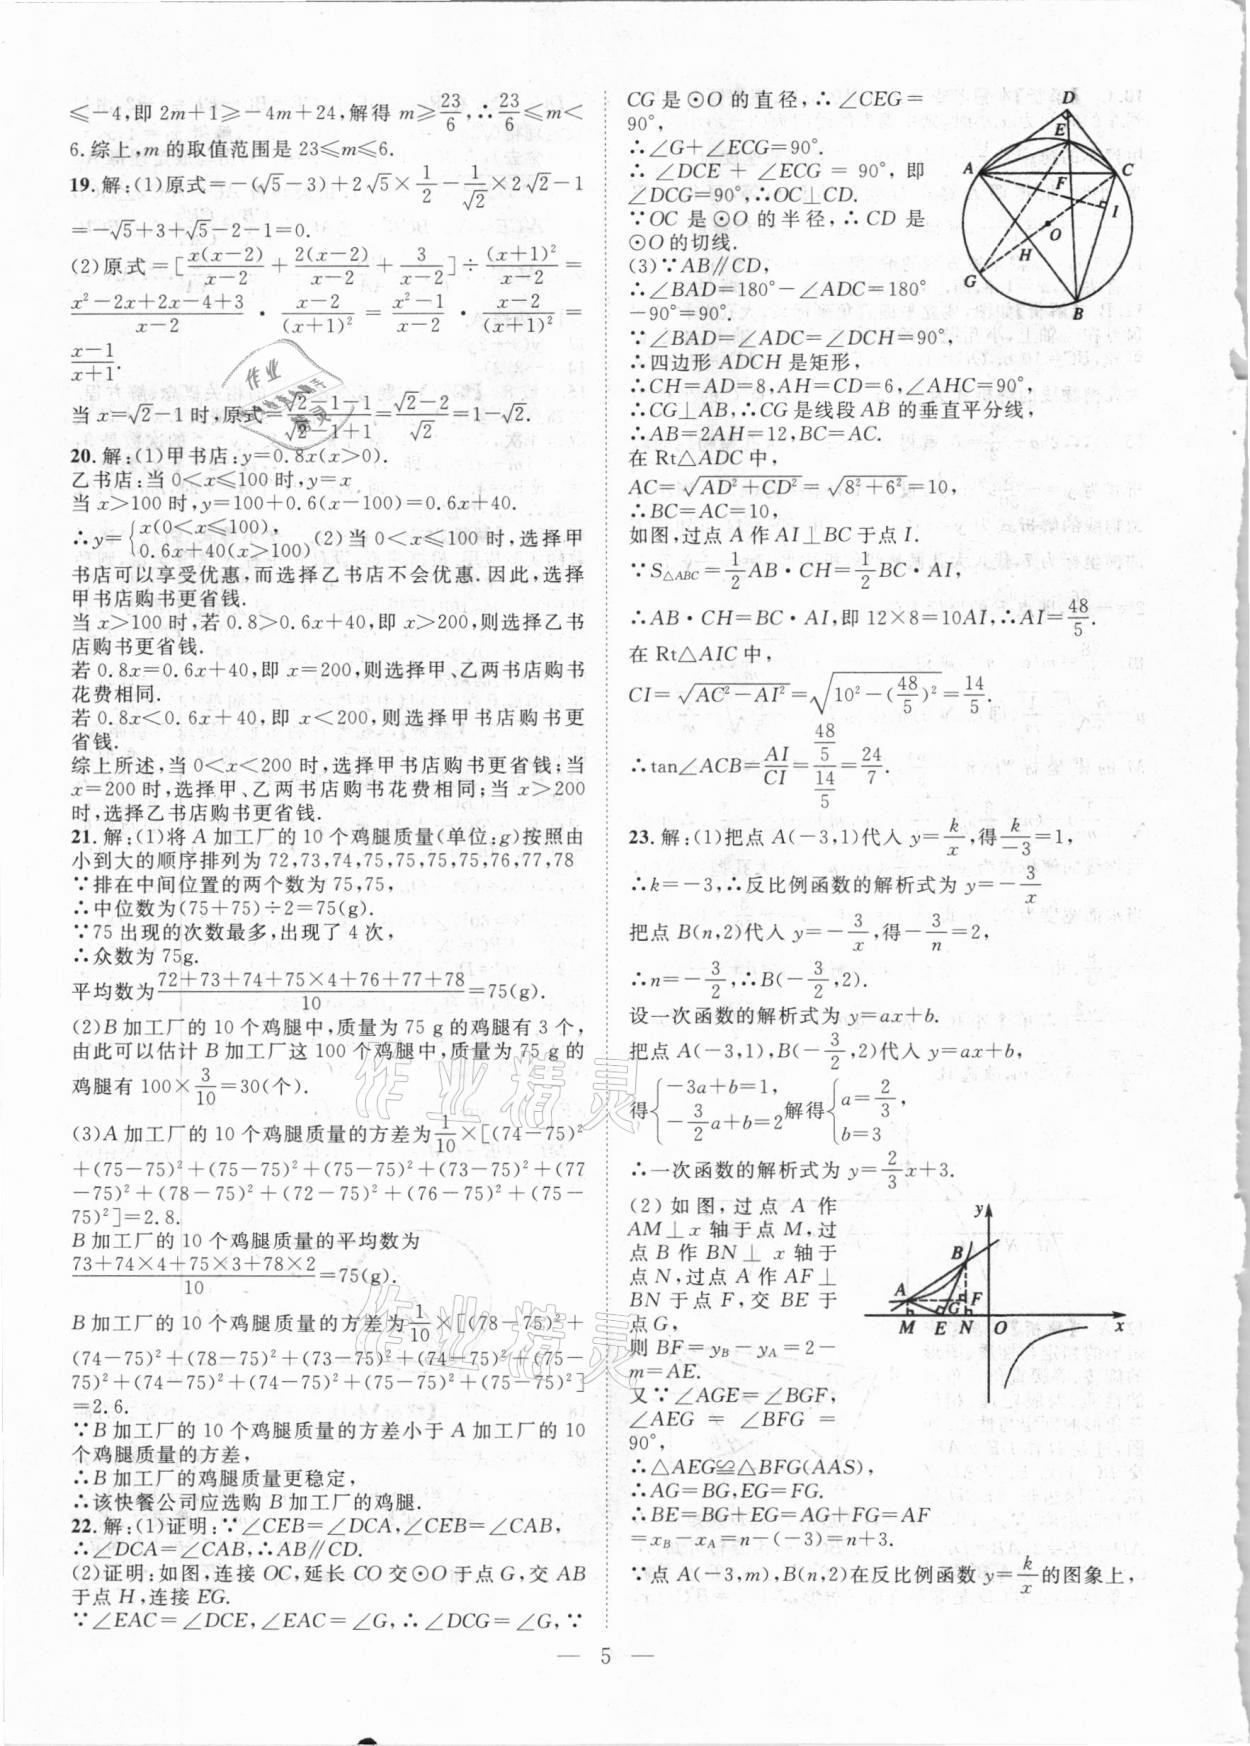 ≤−4,即 2m+1≥−4m+24,解得 m≥23/6,∴23/6≤m<
6.综上,m的取值范围是 23≤m≤6.
19.解:(1)原式=−(√5−3)+2√5×1/2−1/√2×2√2−1
=−√5+3+√5−2−1=0.
(2)原式=[x(x−2)/(x−2)+2(x−2)/(x−2)+3/(x−2)]÷(x+1)²/(x−2)=
(x²−2x+2x−4+3)/(x−2)·(x−2)/(x+1)²=(x²−1)/(x−2)·(x−2)/(x+1)²=
(x−1)/(x+1).
当 x=√2−1时,原式=(√2−1−1)/(√2−1+1)=(√2−2)/√2=1−√2.
20.解:(1)甲书店:y=0.8x(x>0).
乙书店:当 0<x≤100 时,y=x
当 x>100 时,y=100+0.6(x−100)=0.6x+40.
∴y={x(0<x≤100),
0.6x+40(x>100) (2)当 0<x≤100 时,选择甲
书店可以享受优惠,而选择乙书店不会优惠.因此,选择
甲书店购书更省钱.
当 x>100时,若 0.8>0.6x+40,即 x>200,则选择乙书
店购书更省钱.
若 0.8x=0.6x+40,即 x=200,则选择甲、乙两书店购书
花费相同.
若 0.8x<0.6x+40,即 x<200,则选择甲书店购书更
省钱.
综上所述,当 0<x<200 时,选择甲书店购书更省钱;当
x=200 时,选择甲、乙两书店购书花费相同;当 x>200
时,选择乙书店购书更省钱.
21.解:(1)将 A 加工厂的 10 个鸡腿质量(单位:g)按照由
小到大的顺序排列为 72,73,74,75,75,75,75,76,77,78
∵排在中间位置的两个数为 75,75,
∴中位数为(75+75)÷2=75(g).
∵75 出现的次数最多,出现了 4 次,
∴众数为 75g.
平均数为(72+73+74+75×4+76+77+78)/10=75(g).
(2)B 加工厂的 10 个鸡腿中,质量为 75 g 的鸡腿有 3 个,
由此可以估计 B 加工厂这 100 个鸡腿中,质量为 75 g 的
鸡腿有 100×3/10=30(个).
(3)A 加工厂的 10 个鸡腿质量的方差为1/10×[(74−75)²
+(75−75)²+(75−75)²+(75−75)²+(73−75)²+(77
−75)²+(78−75)²+(72−75)²+(76−75)²+(75−
75)²]=2.8.
B 加工厂的 10 个鸡腿质量的平均数为
(73+74×4+75×3+78×2)/10=75(g).
B 加工厂的 10 个鸡腿质量的方差为1/10×[(78−75)²+
(74−75)²+(78−75)²+(73−75)²+(74−75)²+(75−
75)²+(74−75)²+(74−75)²+(75−75)²+(75−75)²]
=2.6.
∵B 加工厂的 10 个鸡腿质量的方差小于 A 加工厂的 10
个鸡腿质量的方差,
∴B 加工厂的鸡腿质量更稳定,
∴该快餐公司应选购 B 加工厂的鸡腿.
22.解:(1)证明:∵∠CEB=∠DCA,∠CEB=∠CAB,
∴∠DCA=∠CAB,∴AB∥CD.
(2)证明:如图,连接 OC,延长 CO 交⊙O 于点 G,交 AB
于点 H,连接 EG.
∵∠EAC=∠DCE,∠EAC=∠G,∴∠DCG=∠G,∵
CG 是⊙O 的直径,∴∠CEG=
90°,
∴∠G+∠ECG=90°.
∴∠DCE+∠ECG=90°,即
∠DCG=90°,∴OC⊥CD.
∵OC 是⊙O 的半径,∴CD 是
⊙O 的切线.
(3)∵AB∥CD,
∴∠BAD=180°−∠ADC=180°
−90°=90°.
∵∠BAD=∠ADC=∠DCH=90°,
∴四边形 ADCH 是矩形,
∴CH=AD=8,AH=CD=6,∠AHC=90°,
∴CG⊥AB,∴CG是线段 AB 的垂直平分线,
∴AB=2AH=12,BC=AC.
在 Rt△ADC 中,
AC=√(AD²+CD²)=√(8²+6²)=10,
∴BC=AC=10,
如图,过点 A 作 AI⊥BC 于点 I.
∵S△ABC=1/2AB·CH=1/2BC·AI,
∴AB·CH=BC·AI,即 12×8=10AI,∴AI=48/5.
在 Rt△AIC 中,
CI=√(AC²−AI²)=√(10²−(48/5)²)=14/5.
∴tan∠ACB=AI/CI=(48/5)/(14/5)=24/7.
23.解:(1)把点 A(−3,1)代入 y=k/x,得k/−3=1,
∴k=−3,∴反比例函数的解析式为 y=−3/x
把点 B(n,2)代入 y=−3/x,得−3/n=2,
∴n=−3/2,∴B(−3/2,2).
设一次函数的解析式为 y=ax+b.
把点 A(−3,1),B(−3/2,2)代入 y=ax+b,
得{−3a+b=1,
−3/2a+b=2 解得{a=2/3,
b=3
∴一次函数的解析式为 y=2/3x+3.
(2)如图,过点 A 作
AM⊥x 轴于点 M,过
点 B 作 BN⊥x 轴于
点 N,过点 A 作 AF⊥
BN 于点 F,交 BE 于
点 G,
则 BF=yB−yA=2−
m=AE.
又∵∠AGE=∠BGF,
∠AEG=∠BFG=
90°,
∴△AEG≌△BFG(AAS),
∴AG=BG,EG=FG.
∴BE=BG+EG=AG+FG=AF
=xB−xA=n−(−3)=n+3.
∵点 A(−3,m),B(n,2)在反比例函数 y=k/x的图象上,
D
E
A
F
C
I
O
H
G
B
y
B
A
F
G
M E N O x
— 5 —
作业精灵
作业精灵